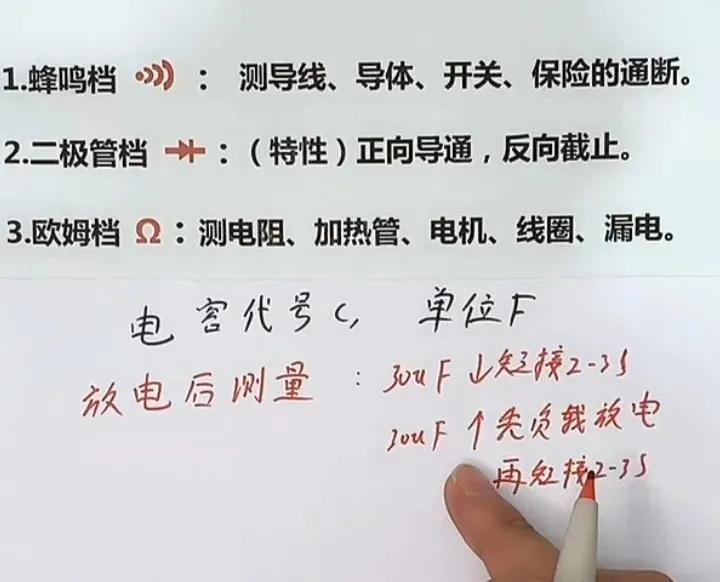 1.蜂鸣档 ： 测导线、导体、开关、保险的通断。
2.二极管档 ：（特性）正向导通，反向截止。
3.欧姆档 Ω：测电阻、加热管、电机、线圈、漏电。
电容代号C, 单位F
放电后测量 : 30uF ↓短接2-3S
30uF ↑先负载放电
再短接2-3S